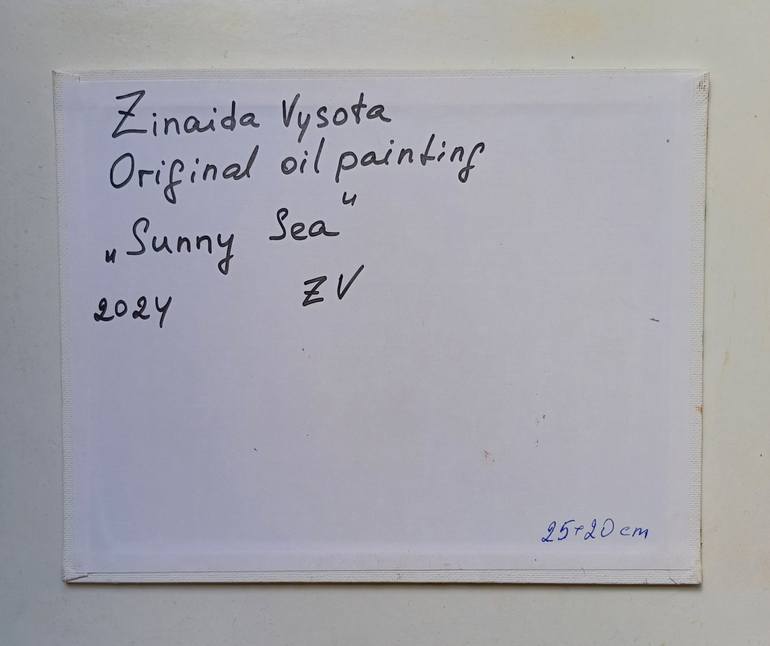 Zinaida Vysota
Original oil painting
„Sunny Sea"
2024 ZV
25+20 cm